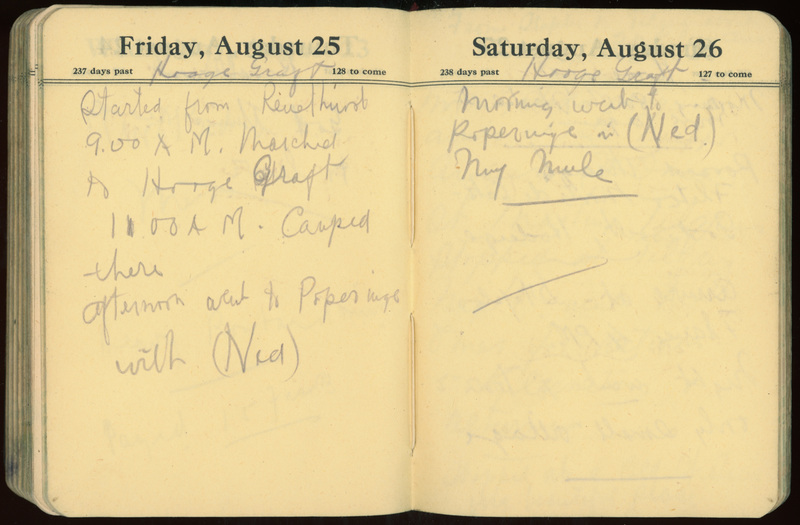 Friday, August 25
237 days past Hooge Graft 128 to come
Started from
9.00 A M. Marched
to Hooge Graft
11.00 A M. Camped
there
afternoon went to Poperinge
with (Ned)
Saturday, August 26
238 days past Hooge Graft 127 to come
Morning went to
Poperinge in (Ned)
My Mule